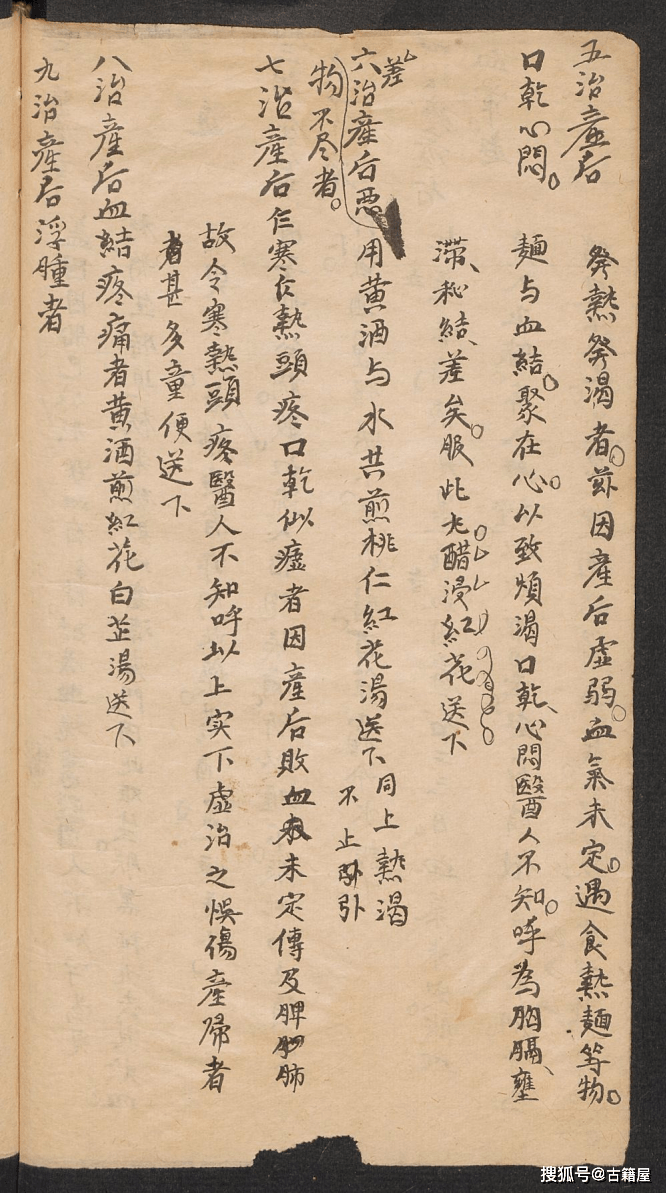 五治產后
口乾心悶。
發熱發渴者。茲因產后虛弱。血氣未定。遇食熱麵等物。
麵与血結。聚在心。以致煩渴口乾、心悶醫人不知。呼為胸膈、壅
滯、秘結、差矣。服此尤醋浸紅花送下
差
六治產后惡
物不尽者。
用黄酒与水共煎桃仁紅花湯送下
同上熱渴
不止
七治產后仨寒仨熱頭疼口乾似瘧者因產后敗血未定傳及脾肺
故令寒熱頭疼醫人不知呼以上实下虛治之悞傷產婦者
甚多童便送下
八治產后血結疼痛者黄酒煎紅花白芷湯送下
九治產后浮腫者
搜狐号@古籍屋